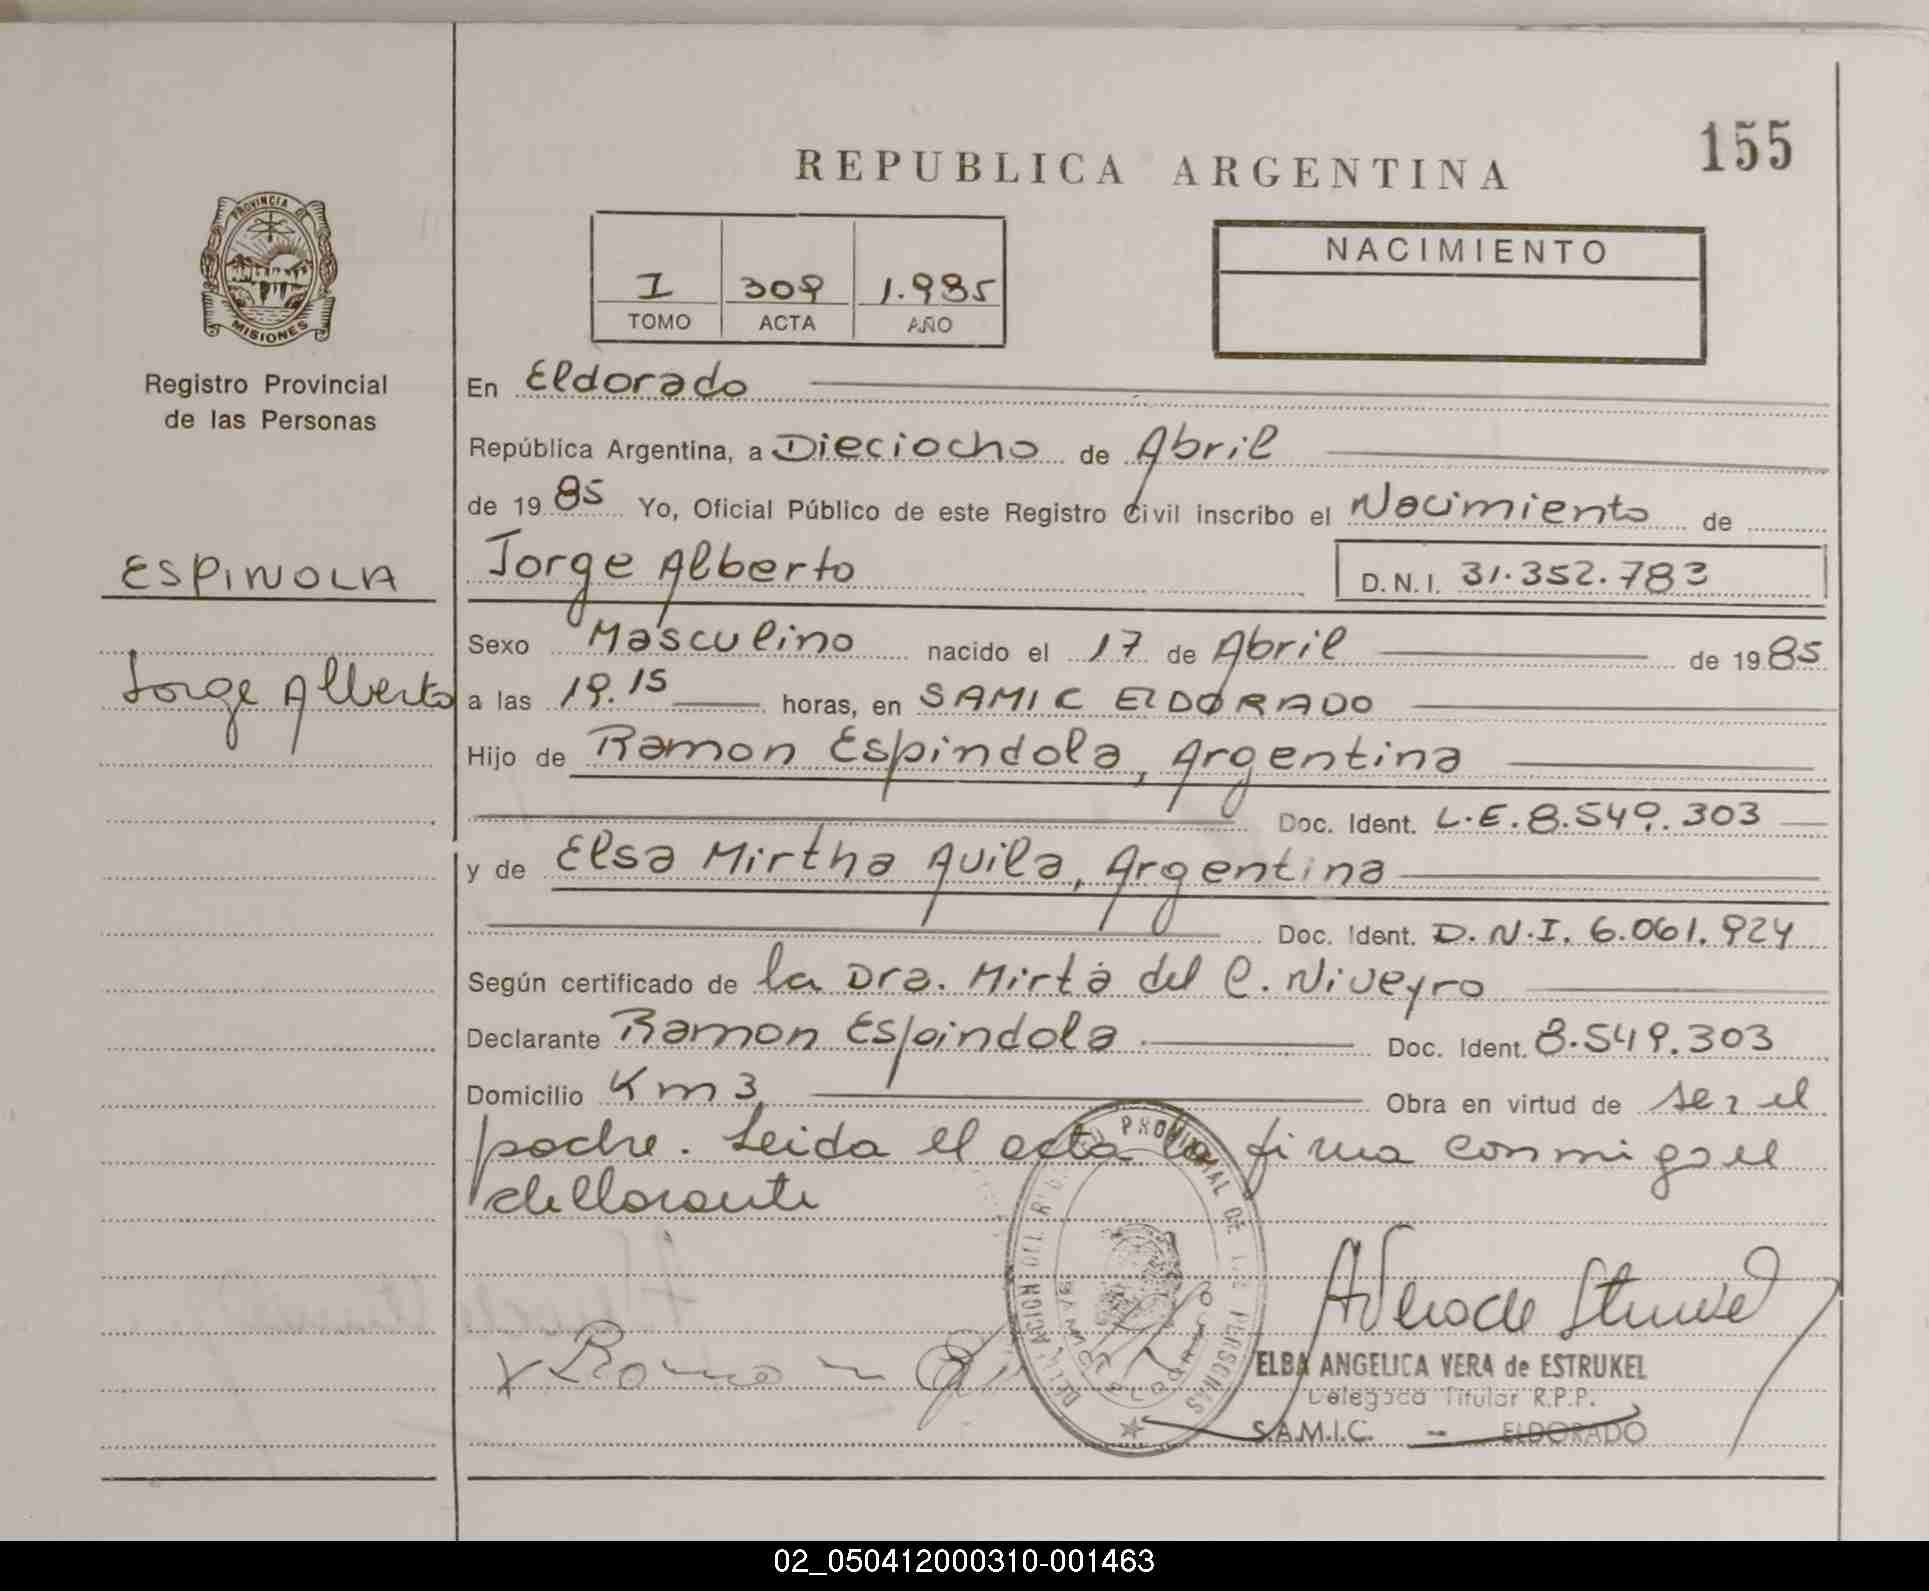 155
REPUBLICA ARGENTINA
PROVINCIA DE
MISIONES
Registro Provincial
de las Personas
I 309 1.985
TOMO ACTA AÑO
NACIMIENTO
En Eldorado
República Argentina, a Dieciocho de Abril
de 1985 Yo, Oficial Público de este Registro Civil inscribo el Nacimiento de
ESPINOLA
Jorge Alberto
Jorge Alberto D.N.I. 31.352.783
Sexo Masculino nacido el 17 de Abril de 1985
a las 19.15 horas, en SAMIC ELDORADO
Hijo de Ramon Espindola, Argentina
Doc. Ident. L.E. 8.549.303
y de Elsa Mirtha Avila, Argentina
Doc. Ident. D.N.I. 6.061.924
Según certificado de la Dra. Mirta del C. Niveyro
Declarante Ramon Espindola Doc. Ident. 8.549.303
Domicilio Km 3 Obra en virtud de ser el
padre. Leida el acta la firma conmigo el
declarante
PROVINCIAL DE LAS PERSONAS
ELBA ANGELICA VERA de ESTRUKEL
Delegada Titular R.P.P.
S.A.M.I.C. - ELDORADO
02_050412000310-001463